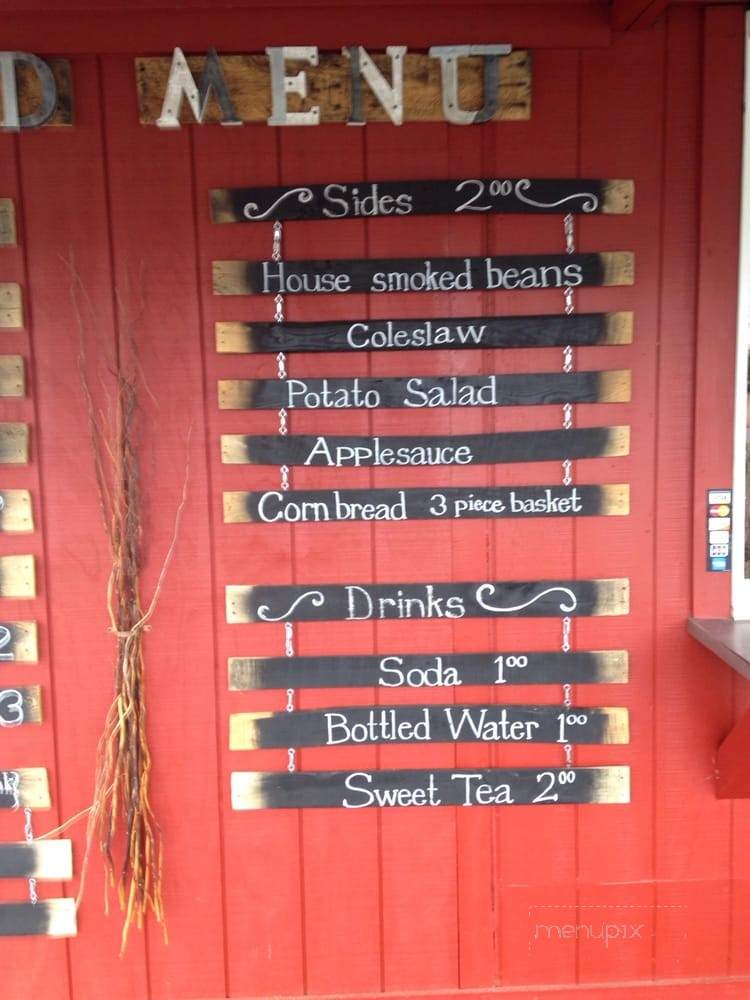 D MENU
Sides 2.00
House smoked beans
Coleslaw
Potato Salad
Applesauce
Corn bread 3 piece basket
Drinks
Soda 1.00
Bottled Water 1.00
Sweet Tea 2.00
2
3
menupix